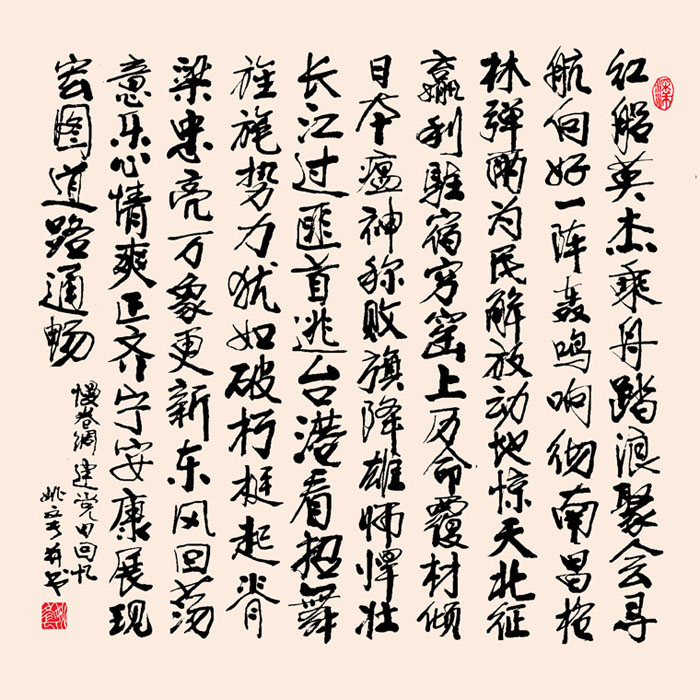 红船英杰乘舟踏浪聚会寻
航向好一阵轰鸣响彻南昌枪
林弹雨为民解放动地惊天北征
赢利驻宿穷窑上万命覆材倾
日本瘟神称败旗降雄师悍壮
长江过匪首逃台港看扭舞
旌旄势力犹如破朽挺起脊
梁忠亮万象更新东风回荡
意乐心情爽正齐宁安康展现
宏图道路通畅
慢卷绸 建党日回忆
姚并书